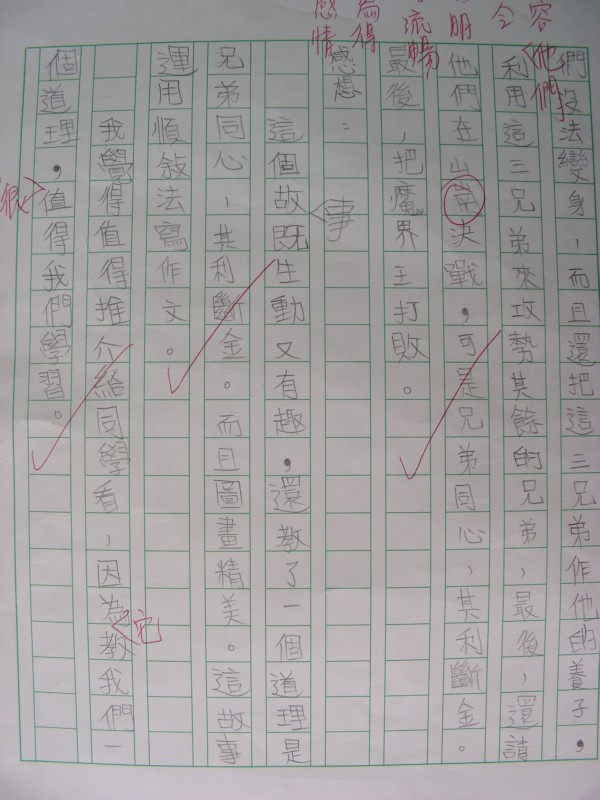 容
令
明
流暢
為得
感情
們沒法變身，而且還把這三兄弟作他的養子，
他們
利用這三兄弟來攻勢其餘的兄弟，最後，還請
他們在山決戰，可是兄弟同心，其利斷金。
最後，把魔界王打敗。
感想：
這個故既生動又有趣，還教了一個道理是
事
兄弟同心，其利斷金。而且圖畫精美。這故事
運用順敘法寫作文。
我覺得值得推介給同學看，因為教我們一
它
個道理，值得我們學習。
很